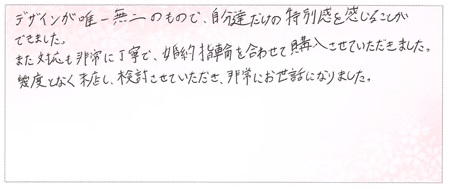 デザインが唯一無二のもので、自分達だけの特別感を感じることが
できました。
また対応も非常に丁寧で、婚約指輪を合わせて購入させていただきました。
幾度となく来店し、検討させていただき、非常にお世話になりました。